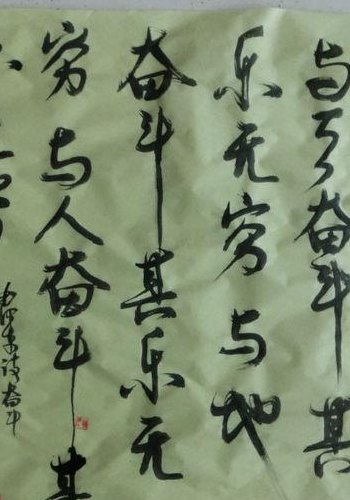 与天奋斗其
乐无穷与地
奋斗其乐无
穷与人奋斗其
毛泽东诗奋斗